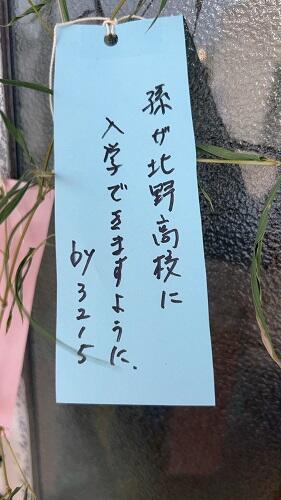 孫が北野高校に
入学できますように.
by 3215